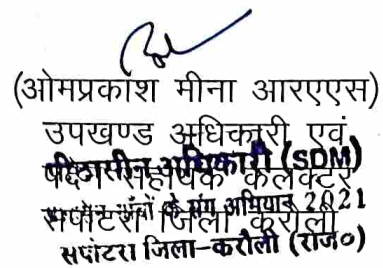 (ओमप्रकाश मीना आरएएस)
उपखण्ड अधिकारी एवं
पीठासीन अधिकारी (SDM)
पदेन सहायक कलेक्टर
गांवों के संग अभियान 2021
सपोटरा जिला करौली
सपोटरा जिला-करौली (राज०)